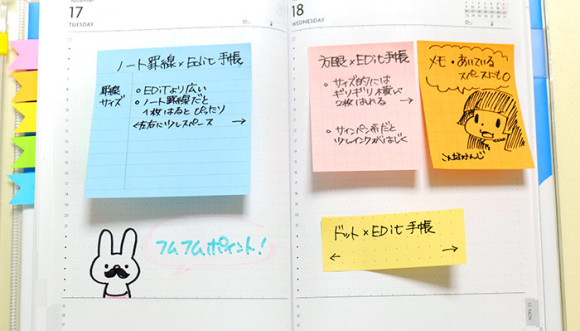 17
TUESDAY
ノート罫線×Edit手帳
罫線
サイズ
○EDiTより広い
○ノート罫線だと
1枚はるとぴったり
←左右に少しスペース →
フムフムポイント!
18
WEDNESDAY
方眼×EDit手帳
○サイズ的には
ギリギリ
2枚はれる →
○サインペンだと
少しインクがはじく
メモ・あいている
スペースにも○
こんなかんじ
ドット×EDit手帳
← →